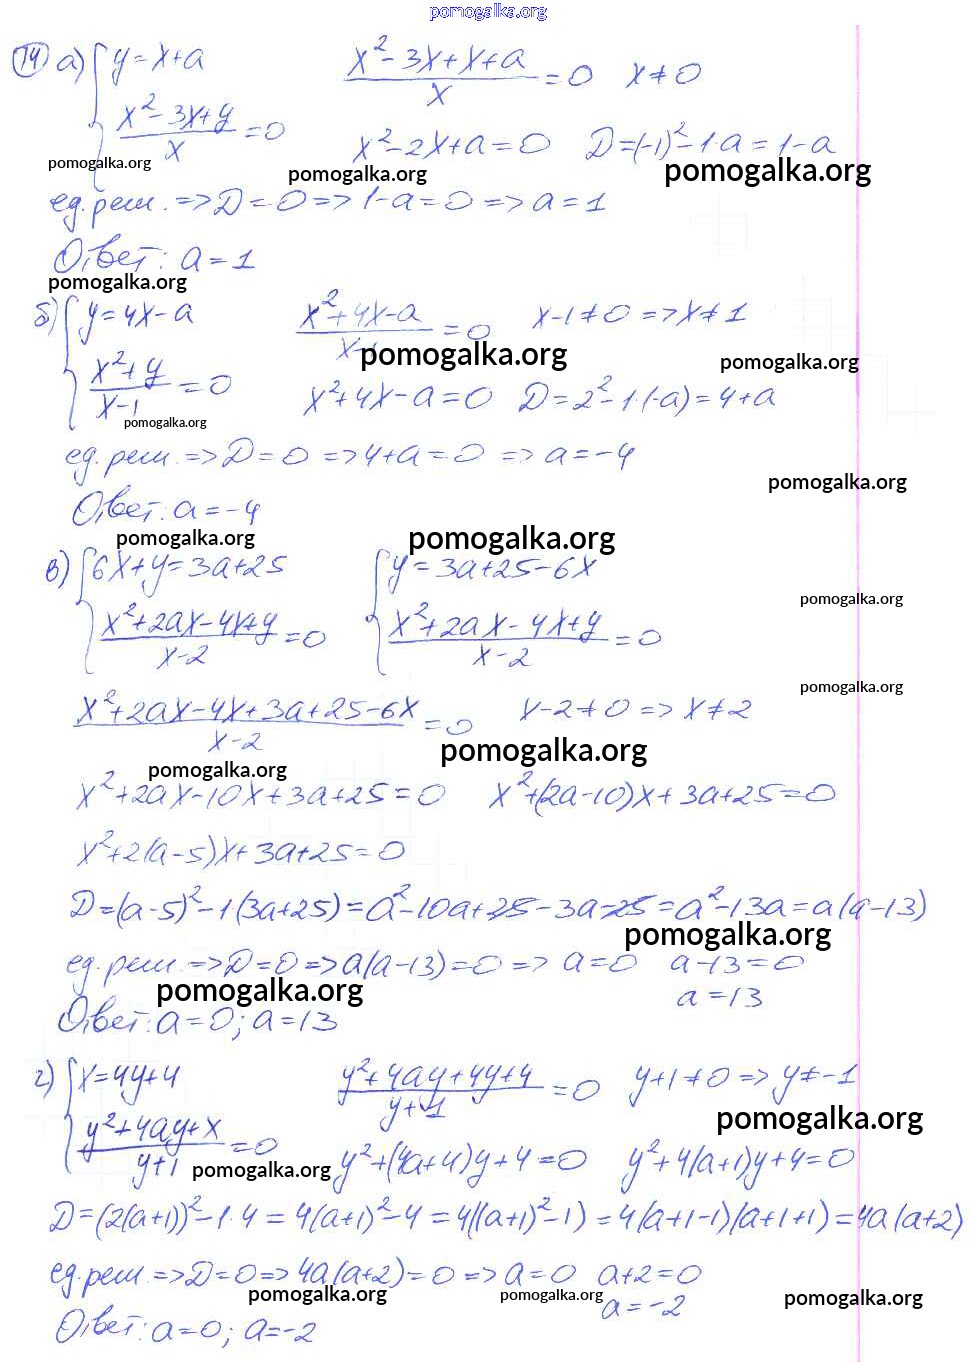 pomogalka.org
14 а) { y=x+a    (x²-3x+x+a)/x = 0    x≠0
(x²-3x+y)/x = 0    x²-2x+a=0    D=(-1)²-1·a=1-a
pomogalka.org pomogalka.org pomogalka.org
ед. реш. => D=0 => 1-a=0 => a=1
Ответ: a=1
pomogalka.org
б) { y=4x-a    (x²+4x-a)/(x-1) = 0    x-1≠0 => x≠1
pomogalka.org pomogalka.org
(x²+y)/(x-1) = 0    x²+4x-a=0    D=2²-1·(-a)=4+a
pomogalka.org
ед. реш. => D=0 => 4+a=0 => a=-4
pomogalka.org
Ответ: a=-4
pomogalka.org pomogalka.org
в) { 6x+y=3a+25    { y=3a+25-6x
pomogalka.org
(x²+2ax-4x+y)/(x-2) = 0    (x²+2ax-4x+y)/(x-2) = 0
pomogalka.org
(x²+2ax-4x+3a+25-6x)/(x-2) = 0    x-2≠0 => x≠2
pomogalka.org pomogalka.org
x²+2ax-10x+3a+25=0    x²+(2a-10)x+3a+25=0
x²+2(a-5)x+3a+25=0
D=(a-5)²-1(3a+25)=a²-10a+25-3a-25=a²-13a=a(a-13)
pomogalka.org
ед. реш. => D=0 => a(a-13)=0 => a=0    a-13=0
pomogalka.org    a=13
Ответ: a=0; a=13
г) { x=4y+4    (y²+4ay+4y+4)/(y+1) = 0    y+1≠0 => y≠-1
pomogalka.org
(y²+4ay+x)/(y+1) = 0    y²+(4a+4)y+4=0    y²+4(a+1)y+4=0
pomogalka.org
D=(2(a+1))²-1·4=4(a+1)²-4=4((a+1)²-1)=4(a+1-1)(a+1+1)=4a(a+2)
ед. реш. => D=0 => 4a(a+2)=0 => a=0    a+2=0
pomogalka.org pomogalka.org pomogalka.org
a=-2
Ответ: a=0; a=-2